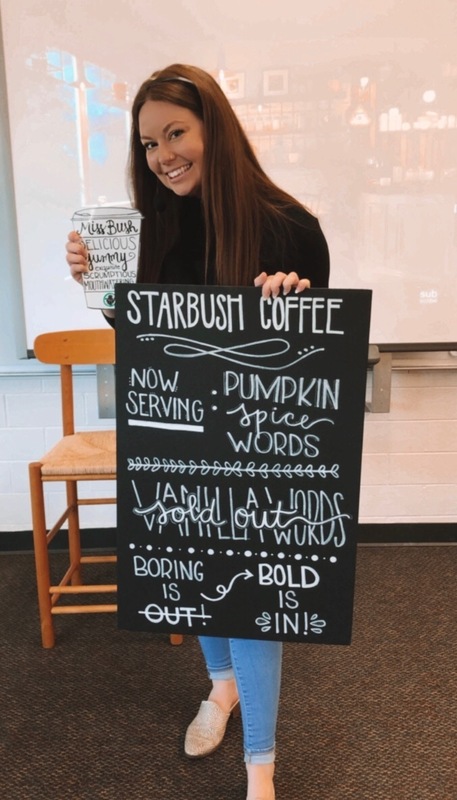 Miss Bush
DELICIOUS
yummy
exquisite
SCRUMPTIOUS
STARBUSH COFFEE
NOW
SERVING :
PUMPKIN
spice
WORDS
VANILLA WORDS
sold out
BORING
IS
OUT!
BOLD
IS
IN!
sub